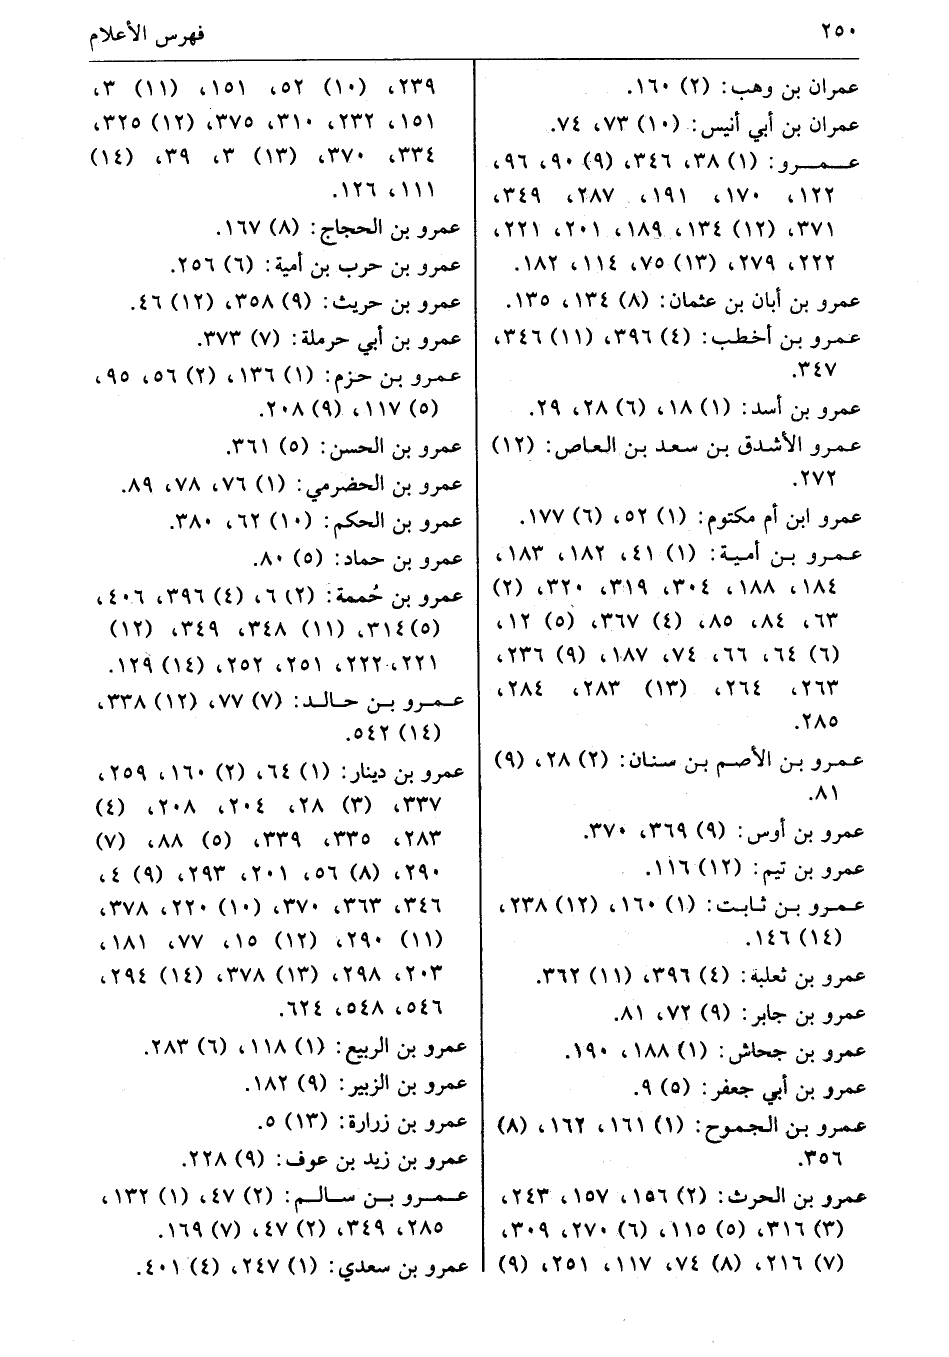 ٢٥٠
فهرس الأعلام
عمران بن وهب: (٢) ١٦٠.
عمران بن أبي أنيس: (١٠) ٧٣، ٧٤.
عـــمـــرو: (١) ٣٨، ٣٤٦، (٩) ٩٠، ٩٦،
١٢٢، ١٧٠، ١٩١، ٢٨٧، ٣٤٩،
٣٧١، (١٢) ١٣٤، ١٨٩، ٢٠١، ٢٢١،
٢٢٢، ٢٧٩، (١٣) ٧٥، ١١٤، ١٨٢.
عمرو بن أبان بن عثمان: (٨) ١٣٤، ١٣٥.
عمرو بن أخطب: (٤) ٣٩٦، (١١) ٣٤٦،
٣٤٧.
عمرو بن أسد: (١) ١٨، (٦) ٢٨، ٢٩.
عمرو الأشدق بن سعد بن العاص: (١٢)
٢٧٢.
عمرو ابن أم مكتوم: (١) ٥٢، (٦) ١٧٧.
عمرو بن أمية: (١) ٤١، ١٨٢، ١٨٣،
١٨٤، ١٨٨، ٣٠٤، ٣١٩، ٣٢٠، (٢)
٦٣، ٨٤، ٨٥، (٤) ٣٦٧، (٥) ١٢،
(٦) ٦٤، ٦٦، ٧٤، ١٨٧، (٩) ٢٣٦،
٢٦٣، ٢٦٤، (١٣) ٢٨٣، ٢٨٤،
٢٨٥.
عمرو بن الأصم بن سنان: (٢) ٢٨، (٩)
٨١.
عمرو بن أوس: (٩) ٣٦٩، ٣٧٠.
عمرو بن تيم: (١٢) ١١٦.
عمرو بن ثابت: (١) ١٦٠، (١٢) ٢٣٨،
(١٤) ١٤٦.
عمرو بن ثعلبة: (٤) ٣٩٦، (١١) ٣٦٢.
عمرو بن جابر: (٩) ٧٢، ٨١.
عمرو بن جحاش: (١) ١٨٨، ١٩٠.
عمرو بن أبي جعفر: (٥) ٩.
عمرو بن الجموح: (١) ١٦١، ١٦٢، (٨)
٣٥٦.
عمرو بن الحرث: (٢) ١٥٦، ١٥٧، ٢٤٣،
(٣) ٣١٦، (٥) ١١٥، (٦) ٢٧٠، ٣٠٩،
(٧) ٢١٦، (٨) ٧٤، ١١٧، ٢٥١، (٩)
٢٣٩، (١٠) ٥٢، ١٥١، (١١) ٣،
١٥١، ٢٣٢، ٣١٠، ٣٧٥، (١٢) ٣٢٥،
٣٣٤، ٣٧٠، (١٣) ٣، ٣٩، (١٤)
١١١، ١٢٦.
عمرو بن الحجاج: (٨) ١٦٧.
عمرو بن حرب بن أمية: (٦) ٢٥٦.
عمرو بن حريث: (٩) ٣٥٨، (١٢) ٤٦.
عمرو بن أبي حرملة: (٧) ٣٧٣.
عمرو بن حزم: (١) ١٣٦، (٢) ٥٦، ٩٥،
(٥) ١١٧، (٩) ٢٠٨.
عمرو بن الحسن: (٥) ٣٦١.
عمرو بن الحضرمي: (١) ٧٦، ٧٨، ٨٩.
عمرو بن الحكم: (١٠) ٦٢، ٣٨٠.
عمرو بن حماد: (٥) ٨٠.
عمرو بن حُممة: (٢) ٦، (٤) ٣٩٦، ٤٠٦،
(٥) ٣١٤، (١١) ٣٤٨، ٣٤٩، (١٢)
٢٢١، ٢٢٢، ٢٥١، ٢٥٢، (١٤) ١٢٩.
عـمـرو بـن حـالـد: (٧) ٧٧، (١٢) ٣٣٨،
(١٤) ٥٤٢.
عمرو بن دينار: (١) ٦٤، (٢) ١٦٠، ٢٥٩،
٣٣٧، (٣) ٢٨، ٢٠٤، ٢٠٨، (٤)
٢٨٣، ٣٣٥، ٣٣٩، (٥) ٨٨، (٧)
٢٩٠، (٨) ٥٦، ٢٠١، ٢٩٣، (٩) ٤،
٣٤٦، ٣٦٣، ٣٧٠، (١٠) ٢٢٠، ٣٧٨،
(١١) ٢٩٠، (١٢) ١٥، ٧٧، ١٨١،
٢٠٣، ٢٩٨، (١٣) ٣٧٨، (١٤) ٢٩٤،
٥٤٦، ٥٤٨، ٦٢٤.
عمرو بن الربيع: (١) ١١٨، (٦) ٢٨٣.
عمرو بن الزبير: (٩) ١٨٢.
عمرو بن زرارة: (١٣) ٥.
عمرو بن زيد بن عوف: (٩) ٢٢٨.
عـمـرو بـن سـالـم: (٢) ٤٧، (١) ١٣٢،
٢٨٥، ٣٤٩، (٢) ٤٧، (٧) ١٦٩.
عمرو بن سعدي: (١) ٢٤٧، (٤) ٤٠١.